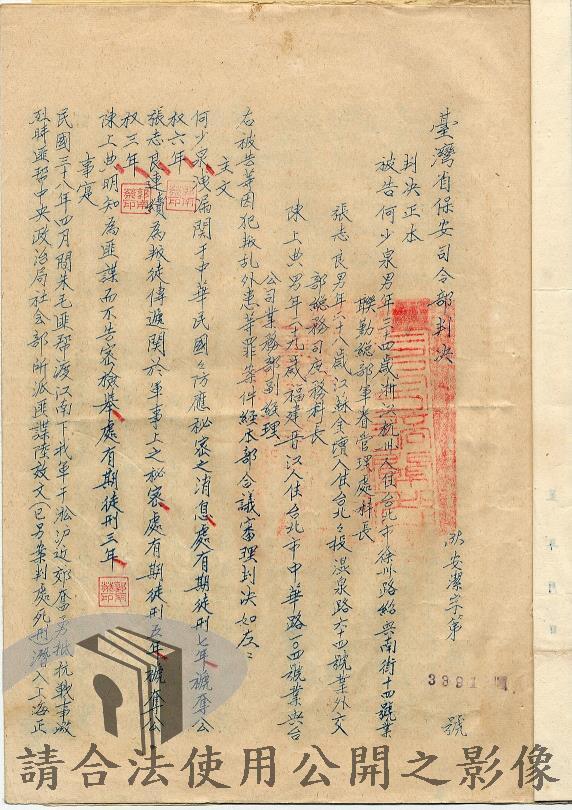 臺灣省保安司令部判決
安潔字第3391號
判決正本
被告何少泉男年三十四歲浙江杭州人住台北市徐州路紹興南街十四號業
聯勤總部軍眷管理處科長
張志良男年六十八歲江蘇金壇人住台北北投溫泉路六十四號業外交
部總務司庶務科長
陳上典男年二十九歲福建晉江人住台北市中華路一〇四號業與台
公司業務部副經理
右被告等因犯叛乱外患等罪案件經本部合議審理判決如左：
主文
何少泉洩漏関于中華民國之防應秘密之消息處有期徒刑七年褫奪公
权六年
張志良連續為叛徒傳遞関於軍事上之秘密處有期徒刑五年褫奪公
权三年
陳上典明知為匪諜而不告密檢舉處有期徒刑三年
事實
民國三十八年四月間朱毛匪幫渡江南下我軍于淞沪近郊奮勇抵抗戰事激
烈時匪幫中央政治局社會部所派匪諜陸效文(已另案判處死刑潛入上海正
請合法使用公開之影像